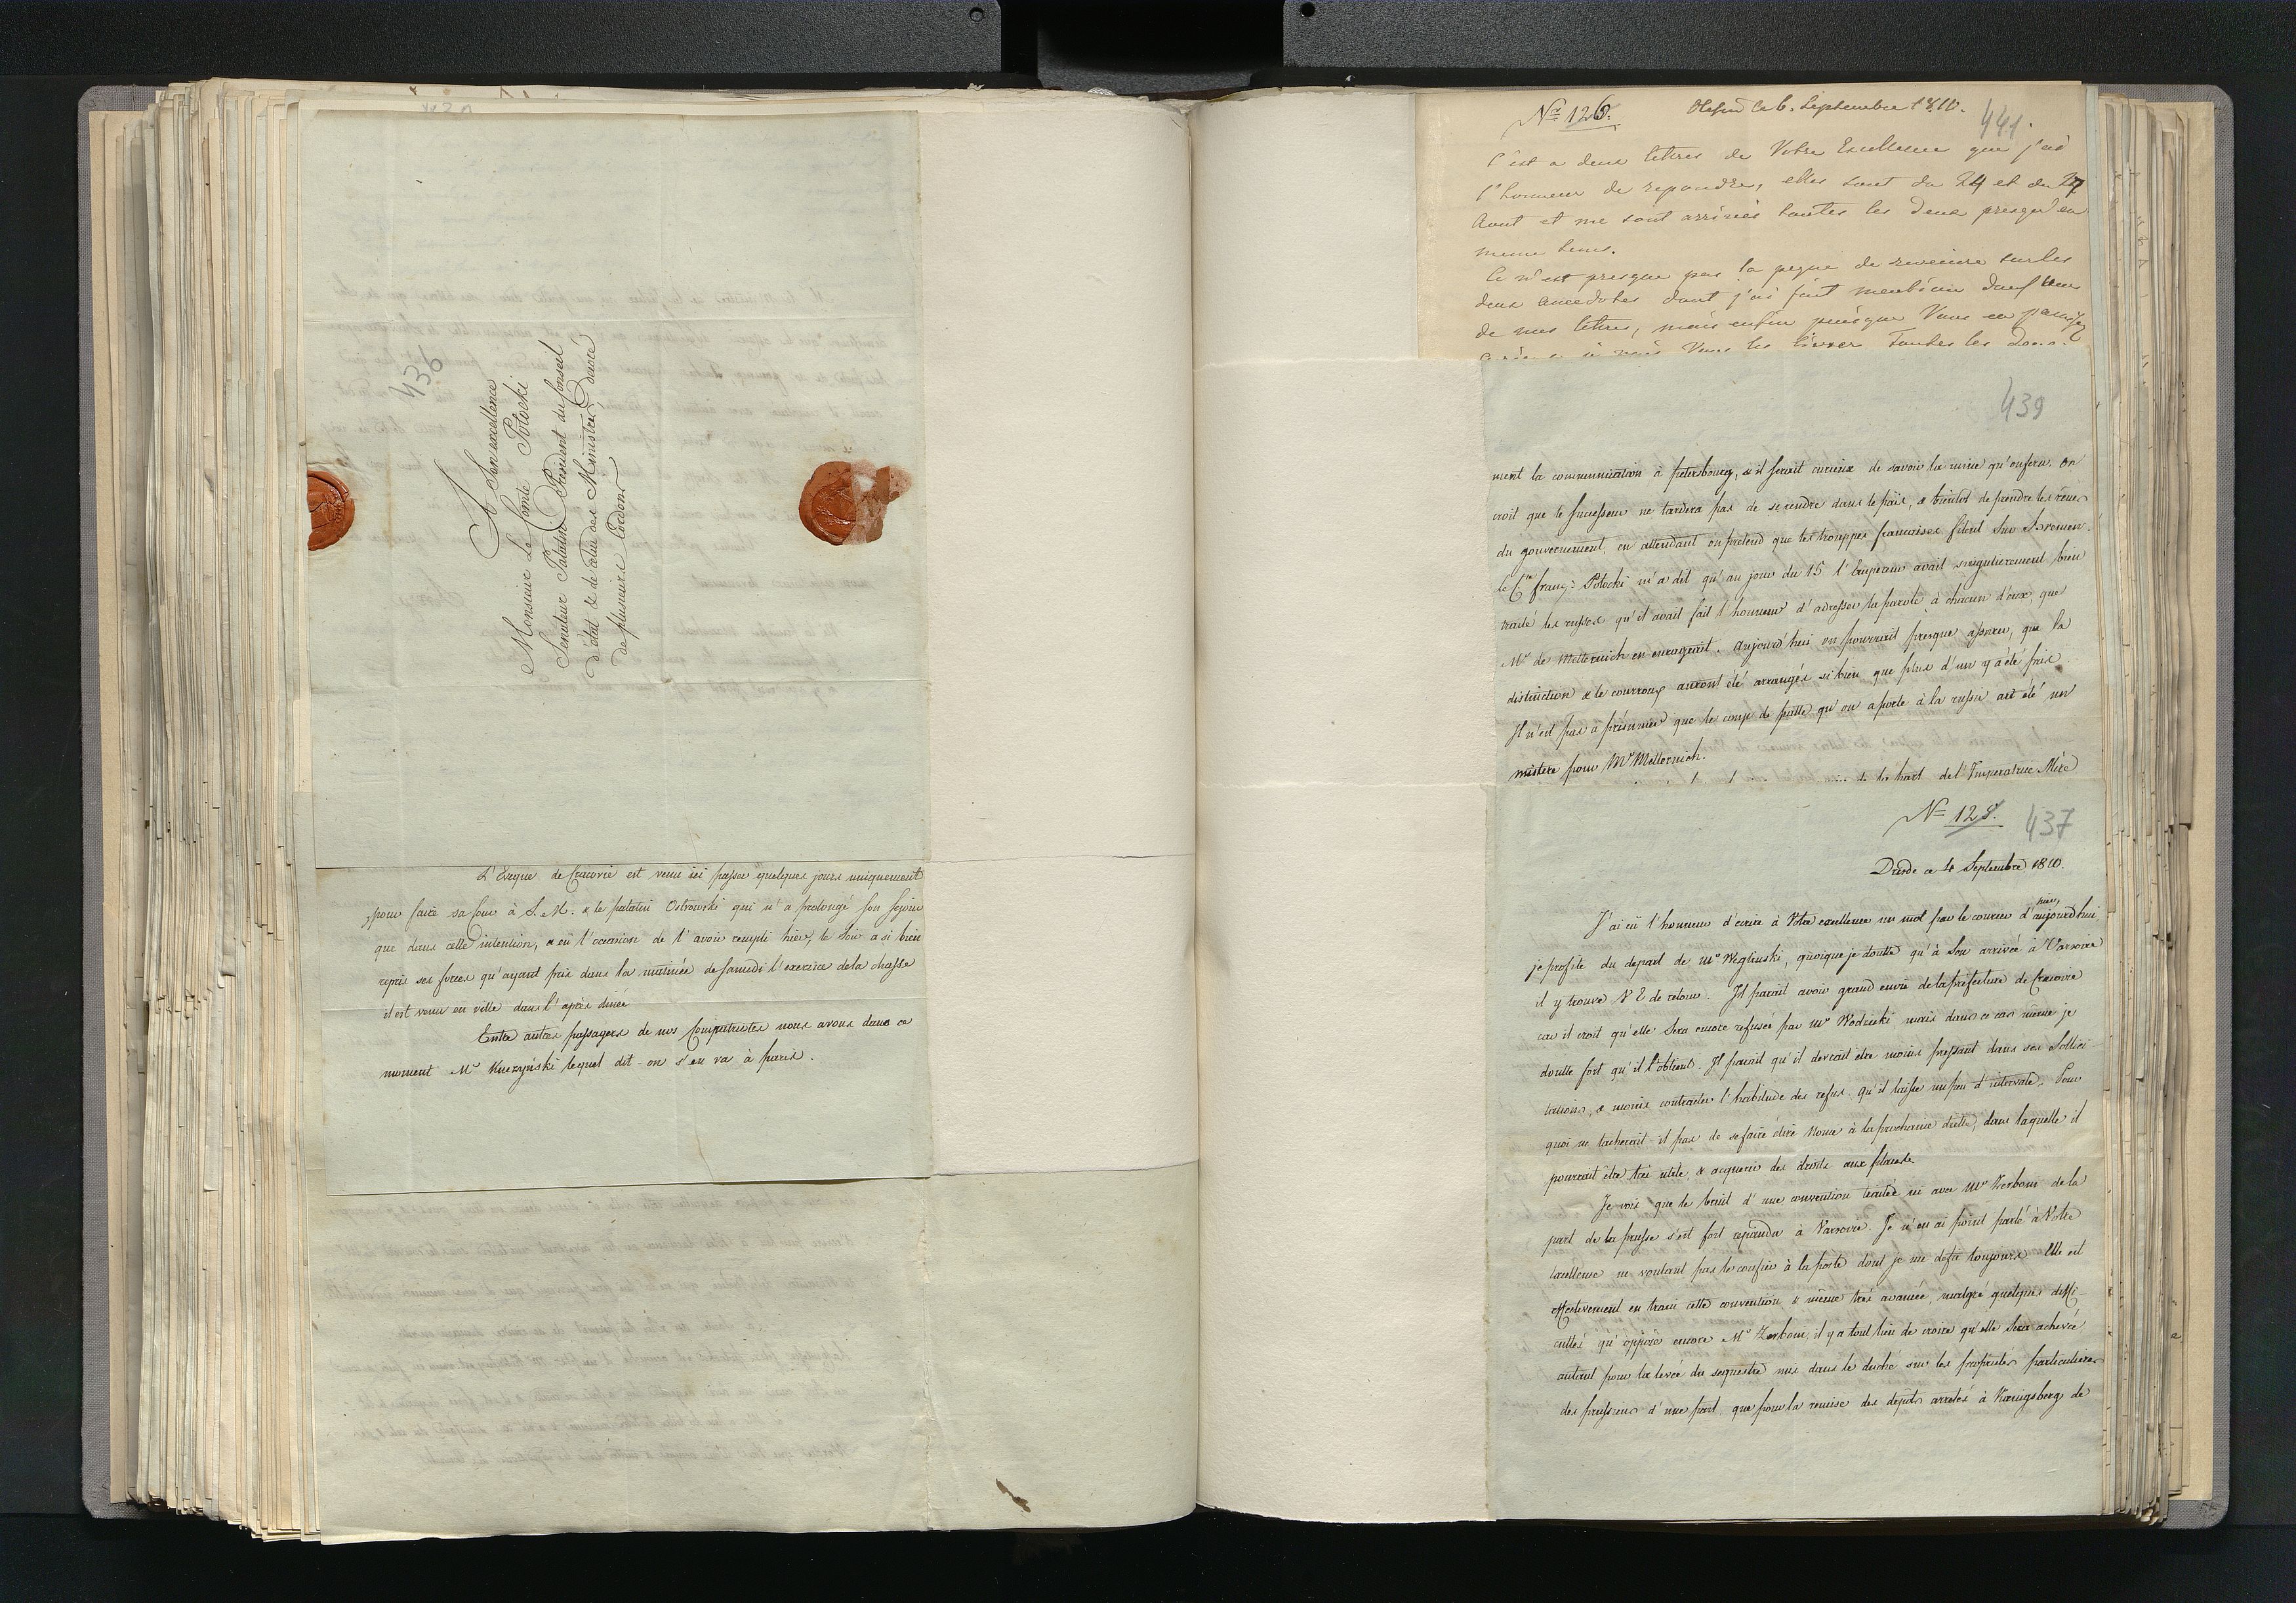 436
A Son excellence
Monsieur Le Comte Potocki
Senateur Palatin President du Conseil
d'état & de celui des Ministres, Decoré
de plusieurs Cordons
L'Eveque de Cracovie est venu ici passer quelques jours uniquement
pour faire sa cour à S. M. & le palatin Ostrowski qui n'a prolongé son sejour
que dans cette intention, a eü l'occasion de l'avoir rempli hier, le Roi a si bien
repris ses forces qu'ayant pris dans la matinée de samedi l'exercice de la chasse
il est venu en ville dans l'après dinée
Entre autres passagers de nos Compatriotes nous avons dans ce
moment Mr Kuczyński lequel dit-on s'en va à paris.
Nro 126.
ce 6. Septembre 1810.
441.
C'est a deux lettres de Votre Excellence que j'ai
l'honneur de repondre, elles sont du 24 et du 27
Aout et me sont arrivées toutes les deux presqu'en
meme tems.
Ce n'est presque pas la peyne de revenir sur les
deux anecdotes dont j'ai fait mention dans une
de mes lettres, mais enfin puisque Vous en
Vous les livrer Toutes les
439
ment la communication à petersbourg, & il serait curieux de savoir la mine qu'on fera. On
croit que le successeur ne tardera pas de se rendre dans le païs, & bientot de prendre les rênes
du gouvernement, en attendant on pretend que les trouppes francaises filent sur Bremen.
le Cte franç: Potocki m'a dit qu'au jour du 15 l'Empereur avait singulierement bien
traité les russes qu'il avait fait l'honneur d'adresser la parole à chacun d'eux, que
Mr de Metternich en enrageait. Aujourd'hui on pourrait presque assurer, que la
distinction & le courroux auront été arrangés si bien que plus d'un y a été pris
Il n'est pas à présumer que le coup de patte qu'on a porté à la russie ait été un
mistere pour Mr Metternich.
de l'Imperatrice Mère
No 128.
437
Dresde ce 4 Septembre 1810.
J'ai eü l'honneur d'ecrire à Votre excellence un mot par le courier d'aujourd'hui
hier,
je profite du depart de Mr Węglenski, quoique je doutte qu'à son arrivée à Varsovie
il y trouve V. E de retour. Il parait avoir grand envie de la préfecture de Cracovie
car il croit qu'elle sera encore refusée par Mr Wodzicki mais dans ce cas même je
doutte fort qu'il l'obtient. Il parait qu'il devrait être moins pressant dans ses sollici
tations, & moins contracter l'habitude des refus. Qu'il laisse un peu d'intervale. Pour
quoi ne tacherait-il pas de se faire élire Nonce à la prochaine diette, dans laquelle il
pourrait être très utile & acquerir des droits aux places.
Je vois que le bruit d'une convention traitée ici avec Mr Zerboni de la
part de la prusse s'est fort repandu à Varsovie. Je n'en ai point parlé à Votre
excellence ne voulant pas le confier à la poste dont je me defie toujours. Elle est
effectivement en train cette convention & même très avancée, malgré quelques diffi-
cultés qu'oppose encore Mr Zerboni, il y a tout lieu de croire qu'elle sera achevée
autant pour la levée du sequestre mis dans le duché sur les propriétés particulieres
des prussiens d'une part, que pour la remise des depots arretés à Kœnigsberg de